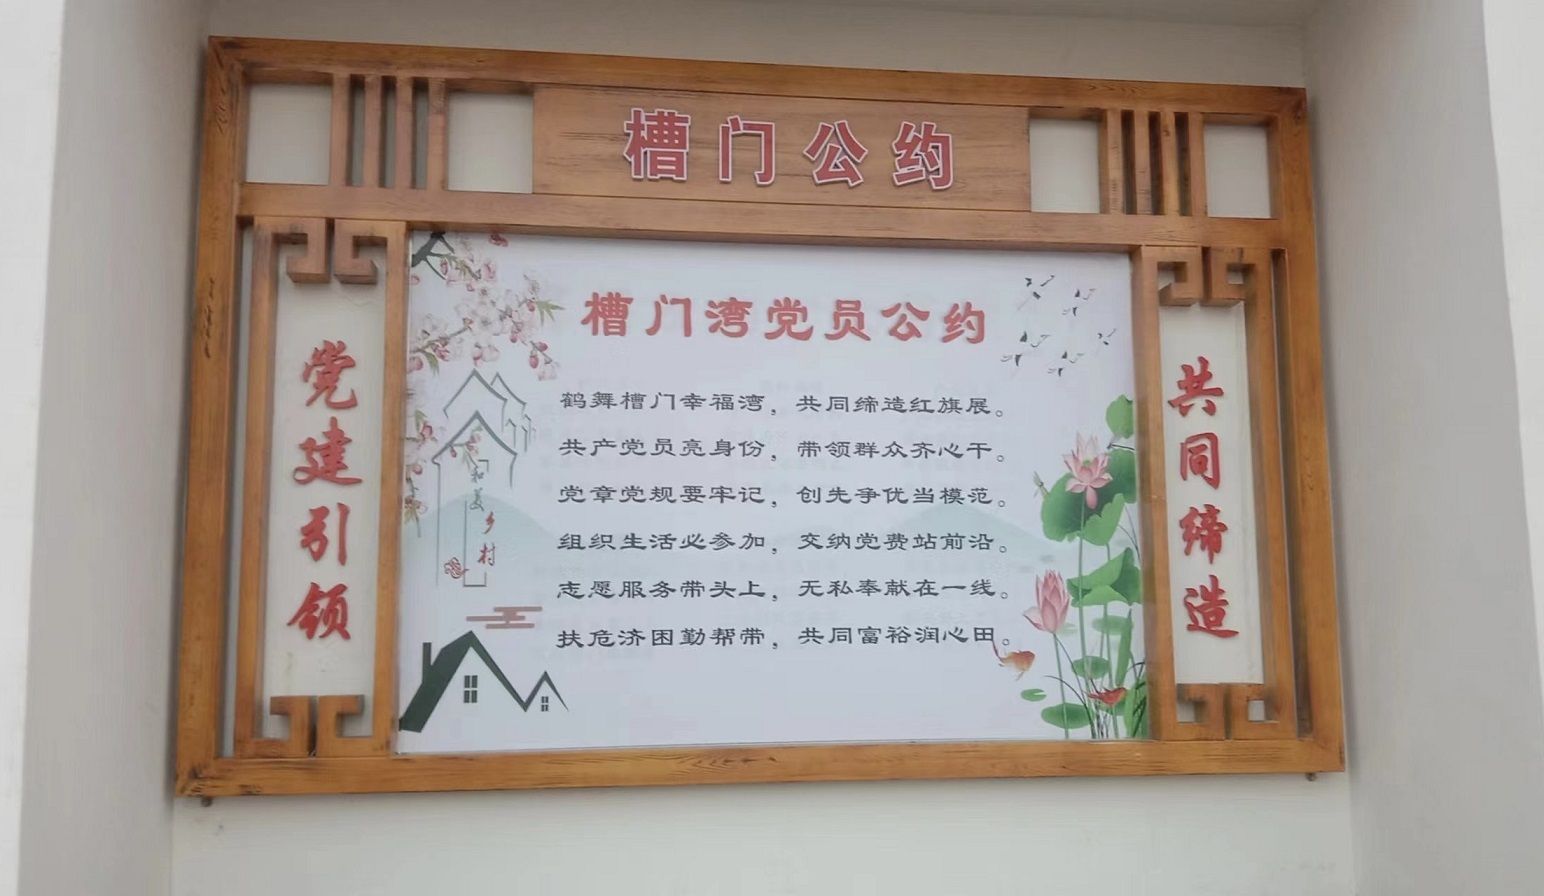 槽门公约
党建引领
槽门湾党员公约
鹤舞槽门幸福湾，共同缔造红旗展。
共产党员亮身份，带领群众齐心干。
党章党规要牢记，创先争优当模范。
组织生活必参加，交纳党费站前沿。
志愿服务带头上，无私奉献在一线。
扶危济困勤帮带，共同富裕润心田。
和美
乡村
共同缔造